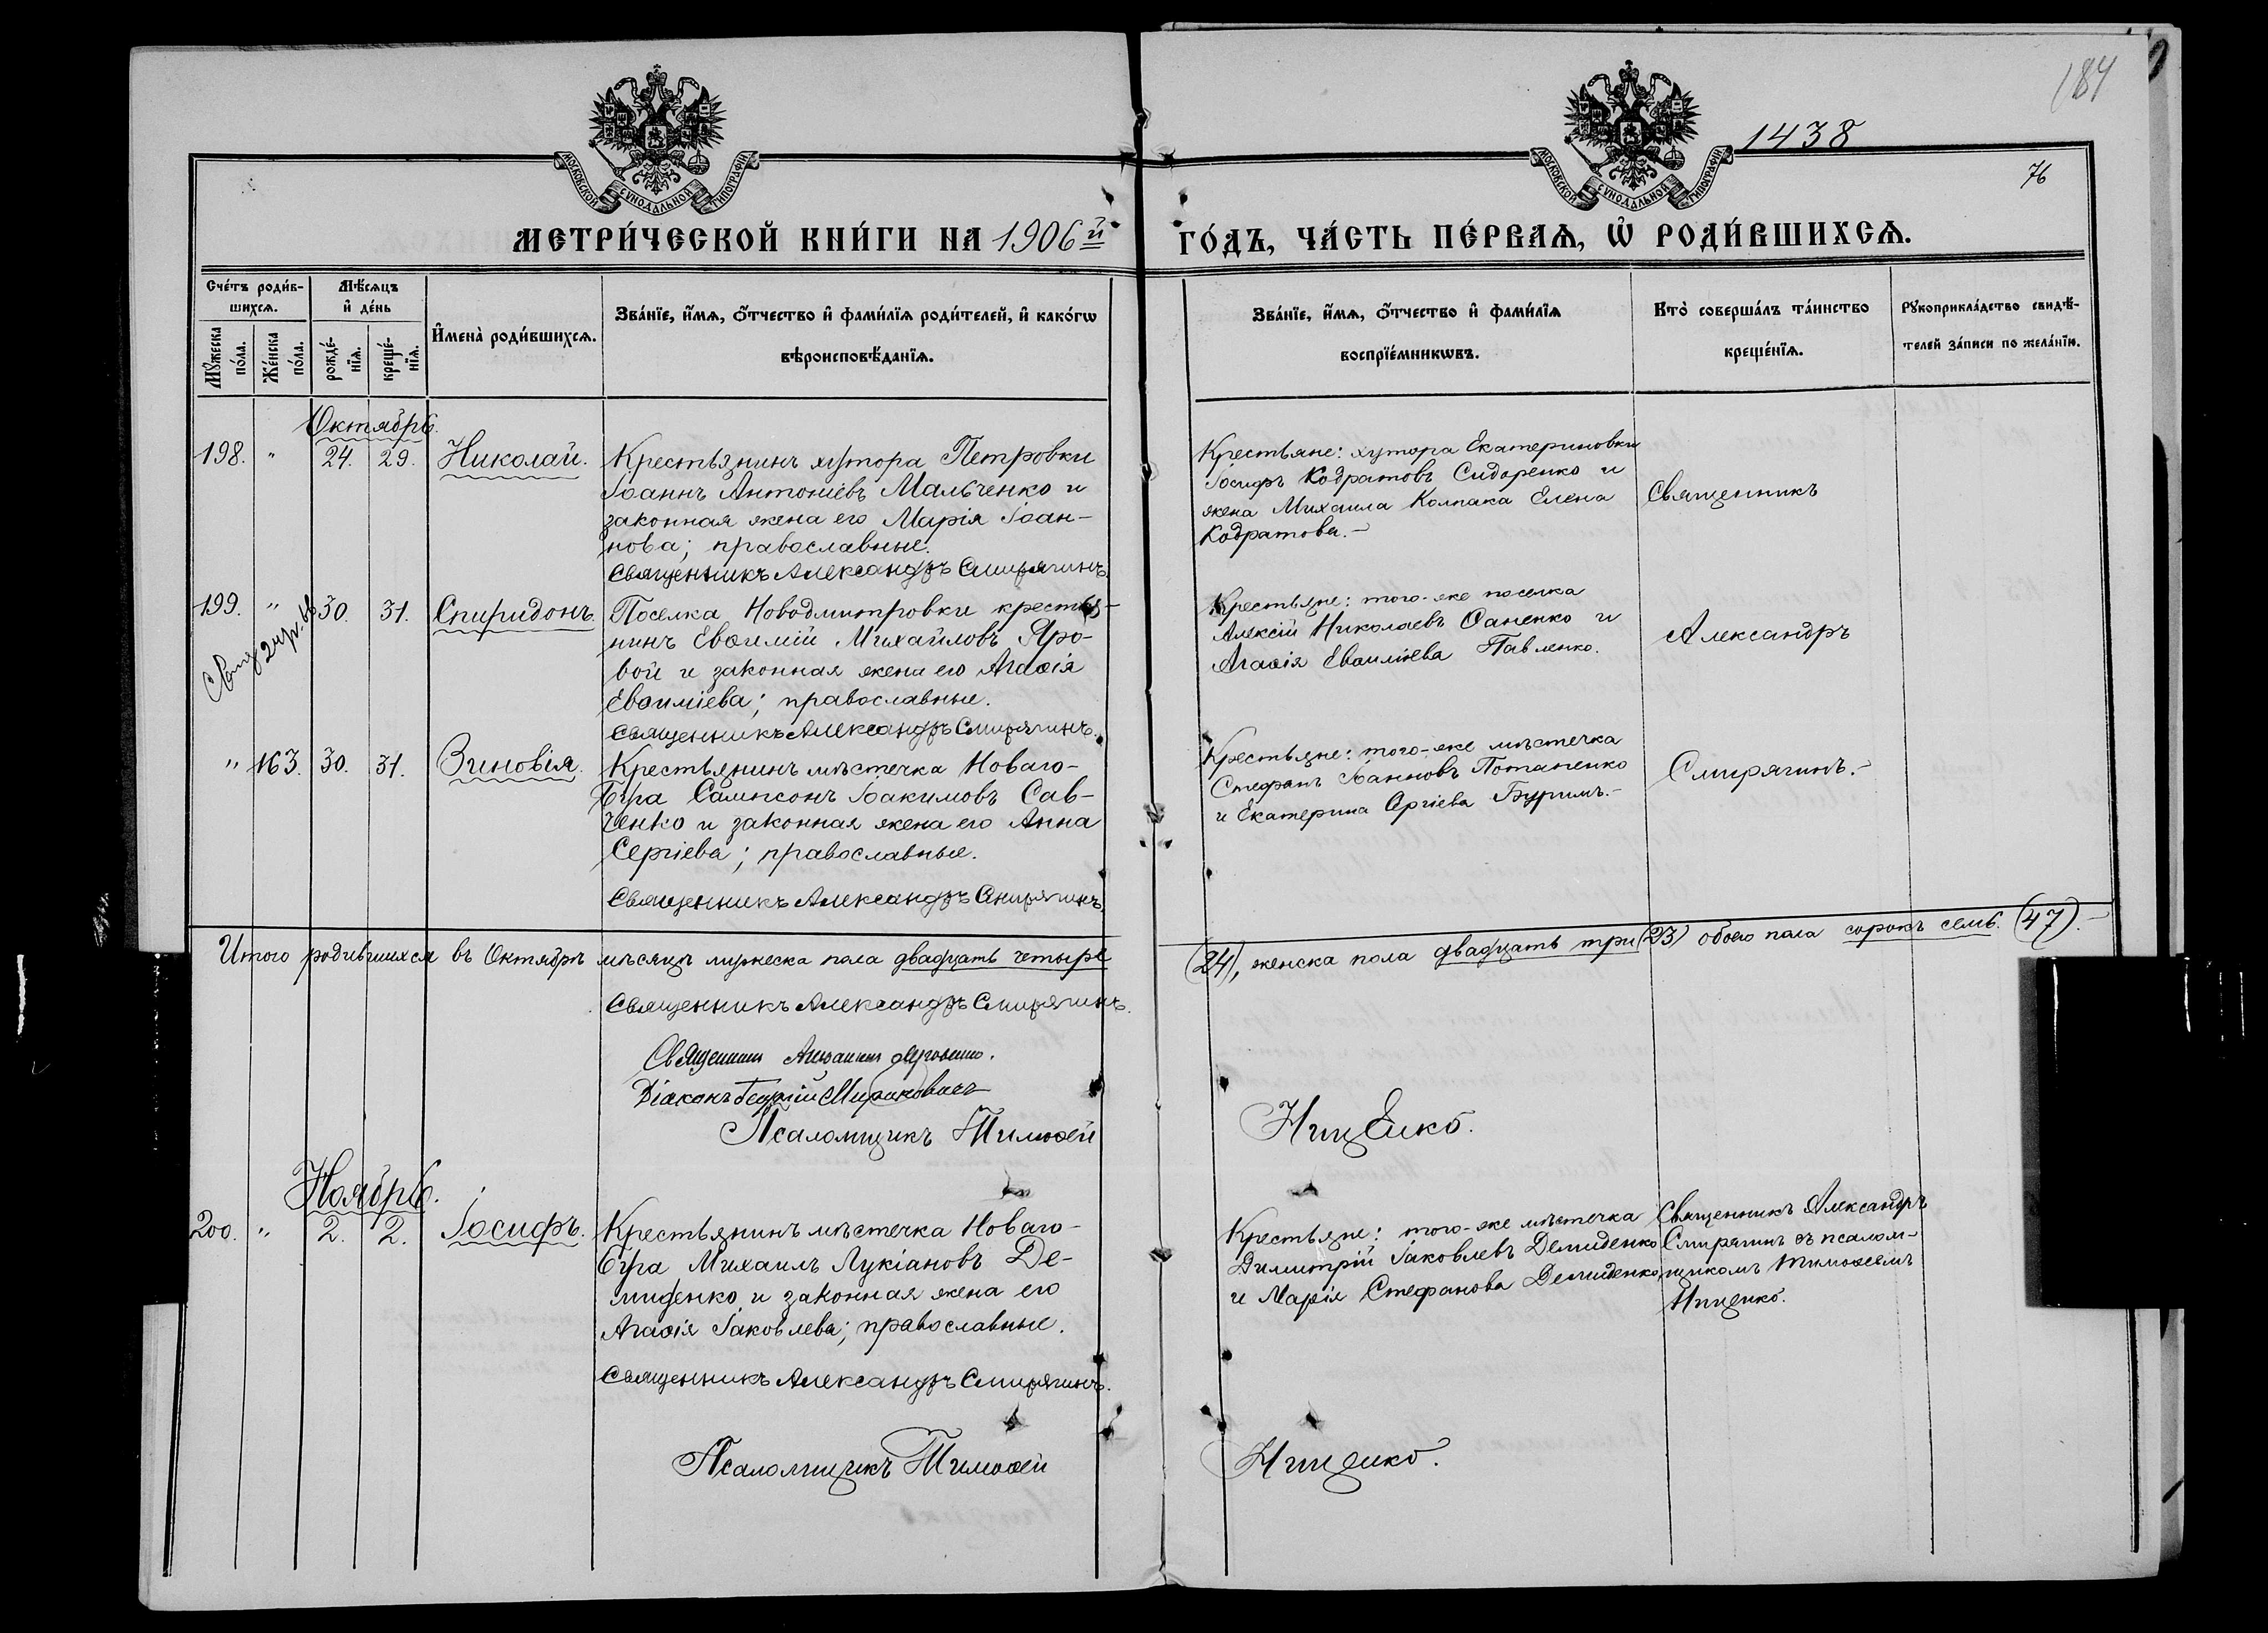 184
1438
76
МОСКОВСКОЙ СѴНОДАЛЬНОЙ ТИПОГРАФІИ
МОСКОВСКОЙ СѴНОДАЛЬНОЙ ТИПОГРАФІИ
МЕТРИ́ЧЕСКОЙ КНИ́ГИ НА 1906й ГО́ДЪ, ЧА́СТЬ ПЕ́РВАѦ, Ѡ҆ РОДИ́ВШИХСѦ.
Сче́тъ роди́в-
шихсѧ.
Мѣ́сѧцъ
и҆ де́нь
Мꙋ́жеска по́ла.
Же́нска по́ла.
рожде́-нїѧ.
креще́-нїѧ.
И҆мена̀ роди́вшихсѧ.
Зва́нїе, и҆́мѧ, ѻ҆́тчество и҆ фами́лїѧ роди́телей, и҆ како́гѡ
вѣроисповѣ́данїѧ.
Зва́нїе, и҆́мѧ, ѻ҆́тчество и҆ фами́лїѧ
воспрїе́мникѡвъ.
Кто̀ соверша́лъ та́инство
креще́нїѧ.
Рꙋкоприкла́дство свидѣ́-
телей за́писи по жела́нїю.
Октябрь.
198. " 24. 29. Николай.
Крестьянинъ хутора Петровки
Іоаннъ Антоніевъ Мальченко и
законная жена его Марія Іоан-
нова; православные.
Священникъ Александръ Смирягинъ.
Крестьяне: хутора Екатериновки
Іосифъ Кодратовъ Сидоренко и
жена Михаила Колпака Елена
Кодратова.-
Священникъ
199. " 30. 31. Спиридонъ.
Поселка Новодмитровки крестья-
нинъ Евѳимій Михайловъ Яро-
вой и законная жена его Агаѳія
Евѳиміева; православные.
Священникъ Александръ Смирягинъ.
Крестьяне: того-же поселка
Алексій Николаевъ Саненко и
Агаѳія Евѳиміева Павленко.
Александръ
" 163. 30. 31. Зиновія.
Крестьянинъ мѣстечка Новаго-
Буга Сампсонъ Іоакимовъ Сав-
ченко и законная жена его Анна
Сергіева; православные.
Священникъ Александръ Смирягинъ.
Крестьяне: того-же мѣстечка
Стефанъ Іоанновъ Потапенко
и Екатерина Сергіева Буримъ.-
Смирягинъ.-
Итого родившихся въ Октябрѣ мѣсяцѣ мужеска пола двадцать четыре (24), женска пола двадцать три (23) обоего пола сорокъ семь. (47).-
Священникъ Александръ Смирягинъ.
Діаконъ Георгій
Псаломщикъ Тимоѳей Нищенко.
Ноябрь.
200. " 2. 2. Іосифъ.
Крестьянинъ мѣстечка Новаго-
Буга Михаилъ Лукіановъ Де-
миденко и законная жена его
Агаѳія Іаковлева; православные.
Священникъ Александръ Смирягинъ.
Крестьяне: того-же мѣстечка
Димитрій Іаковлевъ Демиденко
и Марія Стефанова Демиденко,
Священникъ Александръ
Смирягинъ съ псалом-
щикомъ Тимоѳеемъ
Нищенко.
Псаломщикъ Тимоѳей Нищенко.